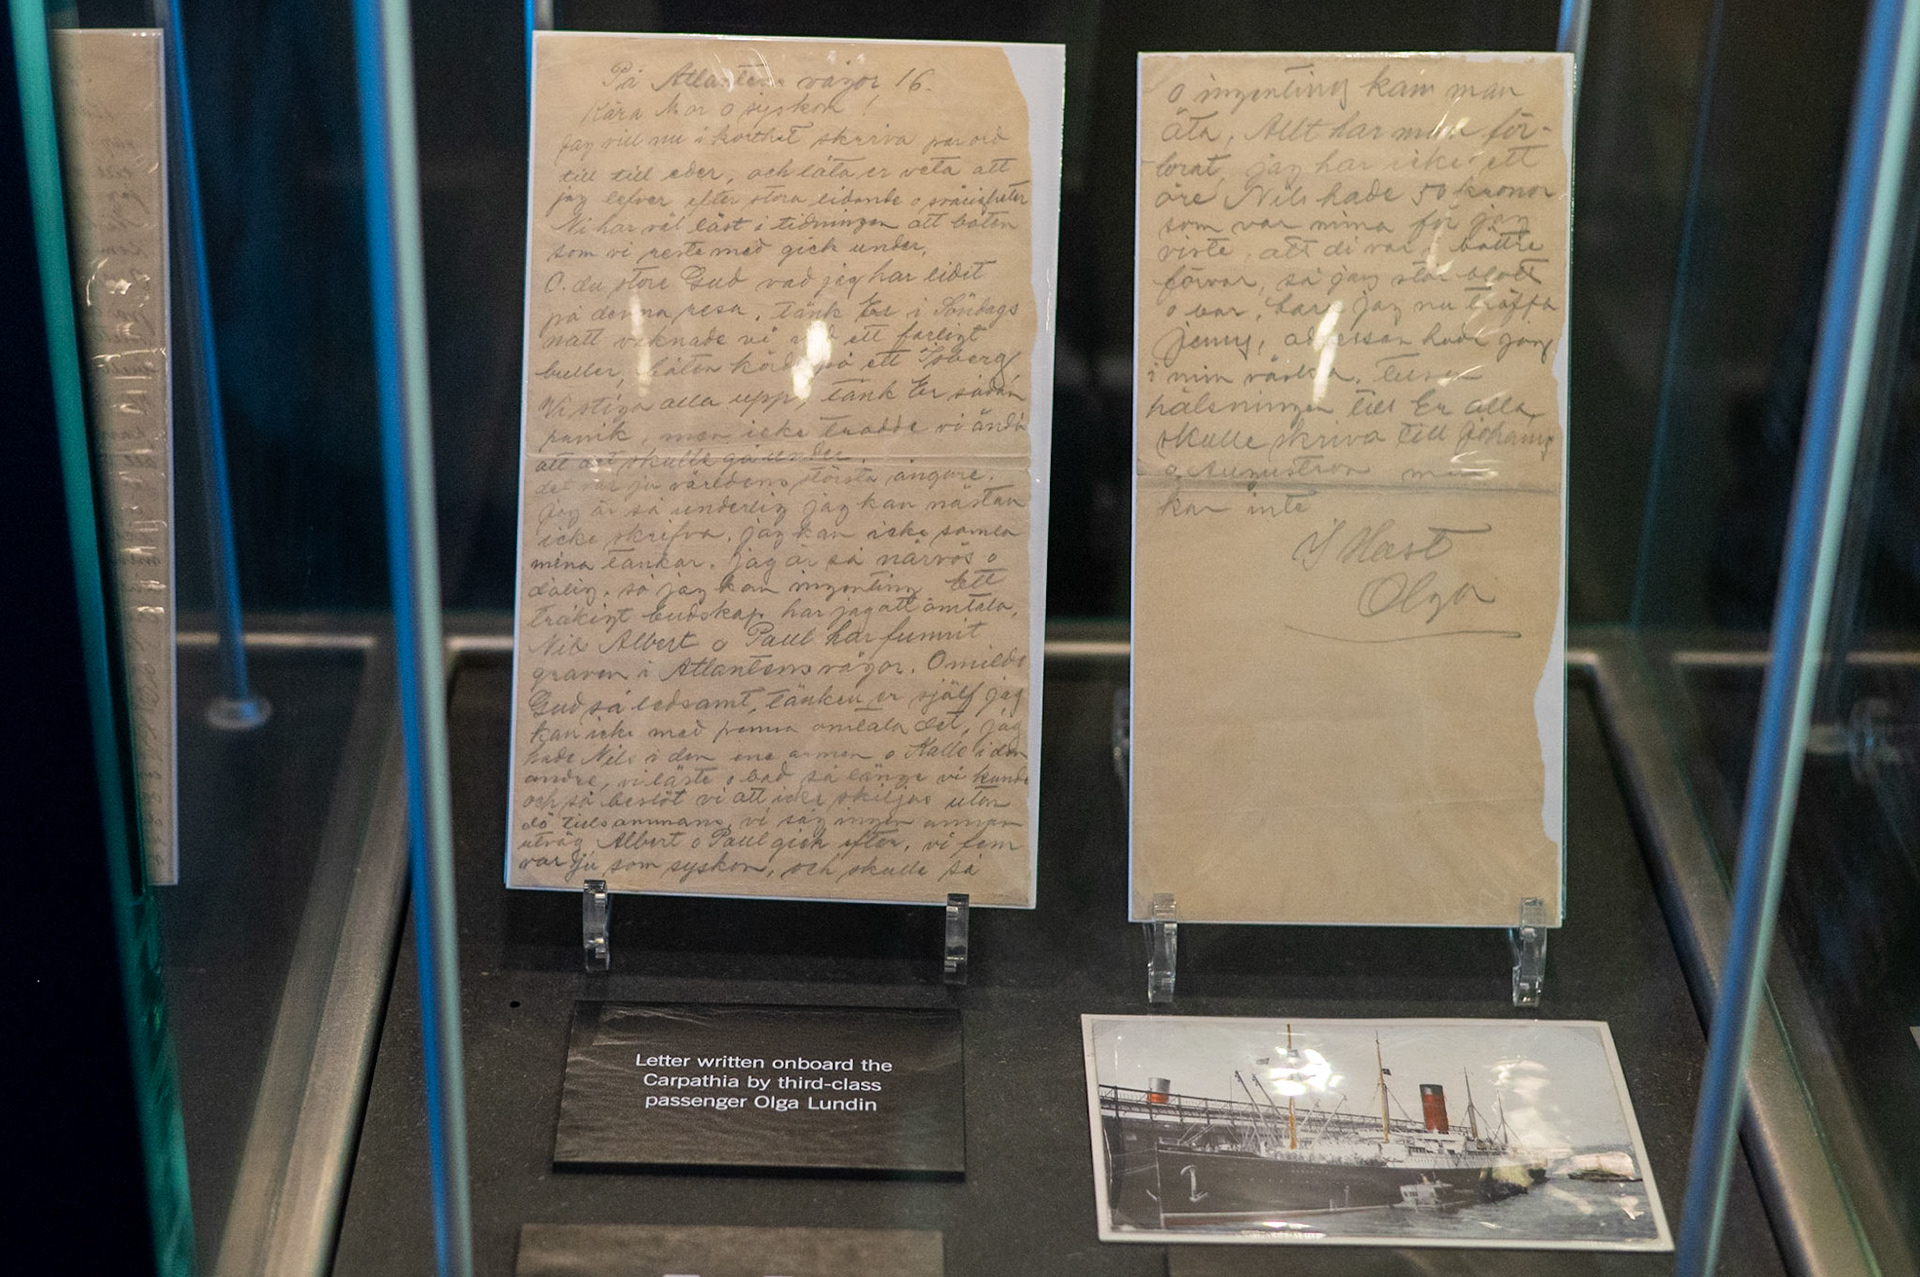 På Atlantens vågor 16.
Kära Mor o syskon!
Jag vill nu i korthet skriva par ord
till till eder, och låta er veta att
jag lefver efter stora lidande o svårigheter
Ni har väl läst i tidningen att båten
som vi reste med gick under.
O. du store Gud vad jag har lidit
på denna resa. tänk Er i Söndags
natt vaknade vi ett farligt
buller, båten körde på ett Isberg,
Vi stiga alla upp, tänk Er sådan
panik, men icke trodde vi ändå
att det skulle gå under.
det var ju världens största ångare.
Jag är så underlig jag kan nästan
icke skrifva. jag kan icke samla
mina tankar. jag är så närvös o
dålig. så jag kan ingenting Ett
tråkigt budskap har jag att omtala,
Nils Albert o Paul har funnit
graven i Atlantens vågor. O milde
Gud så ledsamt, tänken er själf jag
kan icke med penna omtala det, jag
hade Nils i den ene armen o Kalle i den
andre, vi läste o bad så länge vi kunde
och så beslöt vi att icke skiljas utan
dö tillsammans, vi såg ingen annan
utväg Albert o Paul gick efter, vi fem
var ju som syskon, och skulle så
o ingenting kan man
äta, Allt har man för-
lorat, jag har icke ett
öre Nils hade 50 kronor
som var mina för jag
viste, att di var i bättre
förvar, så jag står blott
o bar, bara jag nu träffa
Jenny, adressen hade jag
i min väska. tusen
hälsningar till Er alla,
skulle skriva till Johanns
o Augustson men
kan inte
I Hast
Olga
Letter written onboard the
Carpathia by third-class
passenger Olga Lundin